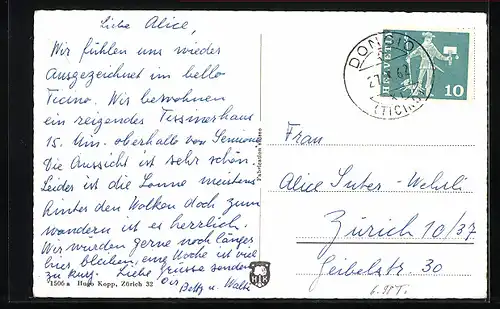 Liebe Alice,
Wir fühlen uns wieder
Ausgezeichnet im bello
Ticino. Wir bewohnen
ein reizendes Tessinerhaus
15. Min. oberhalb von Semione
Die Aussicht ist sehr schön.
Leider ist die Sonne meistens
hinter den Wolken doch zum
wandern ist es herrlich.
Wir würden gerne noch länger
hier bleiben, eine Woche ist viel
zu kurz. Liebe Grüsse senden
Dir Betty u. Walti
1506 a Hugo Kopp, Zürich 32
Fabrication suisse
DONGIO
(TICINO)
HELVETIA
10
Frau
Alice Suter-Wehrli
Zürich 10/37
Geibelstr. 30